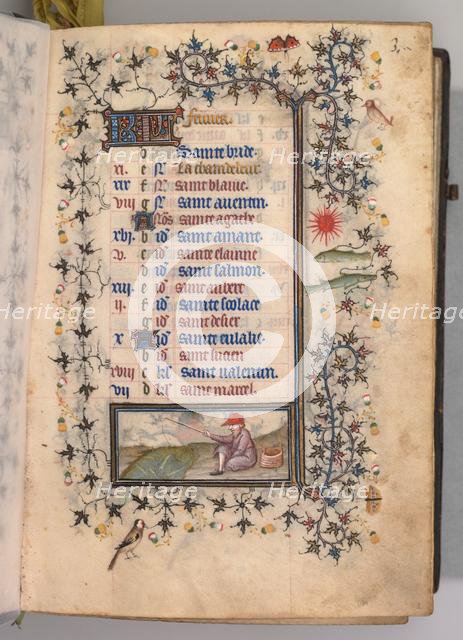 3
KL feurier.
d Sainte bride.
xi. e N La chandeleur
xix f N saint blaiue
viii g N saint auentin.
A Nōs sainte agathe
xvi. b id saint amant.
v. c id sainte elainne
d id saint salmon.
xiii. e id saint
ii. f id sainte scolace
g id saint desier
x A id sainte eulalie.
b id saint lucien
xviii c kł saint ualentin.
vii d kł saint marcel.
Heritage
Heritage
Heritage
Heritage
Heritage
Heritage